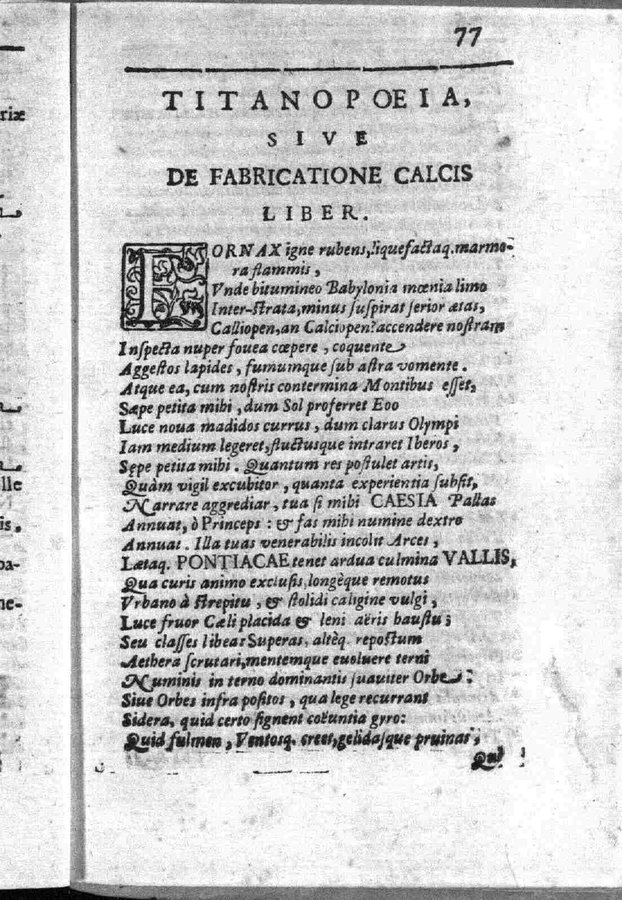 77
TITANOPOEIA,
SIVE
DE FABRICATIONE CALCIS
LIBER.
FORNAX igne rubens, liquefactaq. marmo-
ra flammis,
Vnde bitumineo Babylonia mœnia limo
Inter-strata, minus suspirat serior ætas,
Calliopen, an Calciopen? accendere nostram
Inspecta nuper fouea cœpere, coquente
Aggestos lapides, fumumque sub astra vomente.
Atque ea, cum nostris contermina Montibus esset,
Sæpe petita mihi, dum Sol proferret Eoo
Luce noua madidos currus, dum clarus Olympi
Iam medium legeret, fluctusque intraret Iberos,
Sępe petita mihi. Quantum res postulet artis,
Quàm vigil excubitor, quanta experientia subsit,
Narrare aggrediar, tua si mihi CAESIA Pallas
Annuat, ò Princeps: & fas mihi numine dextro
Annuat. Illa tuas venerabilis incolit Arces,
Lætaq. PONTIACAE tenet ardua culmina VALLIS,
Qua curis animo exclusis, longèque remotus
Vrbano à strepitu, & stolidi caligine vulgi,
Luce fruor Cæli placida & leni aëris haustu;
Seu classes libeat Superas, altèq. repostum
Aethera scrutari, mentemque euoluere terni
Numinis in terno dominantis suauiter Orbe:
Siue Orbes infra positos, qua lege recurrant
Sidera, quid certo signent coëuntia gyro:
Quid fulmen, Ventosq. creet, gelidasque pruinas,
riæ
lle
is.
pa-
ne-